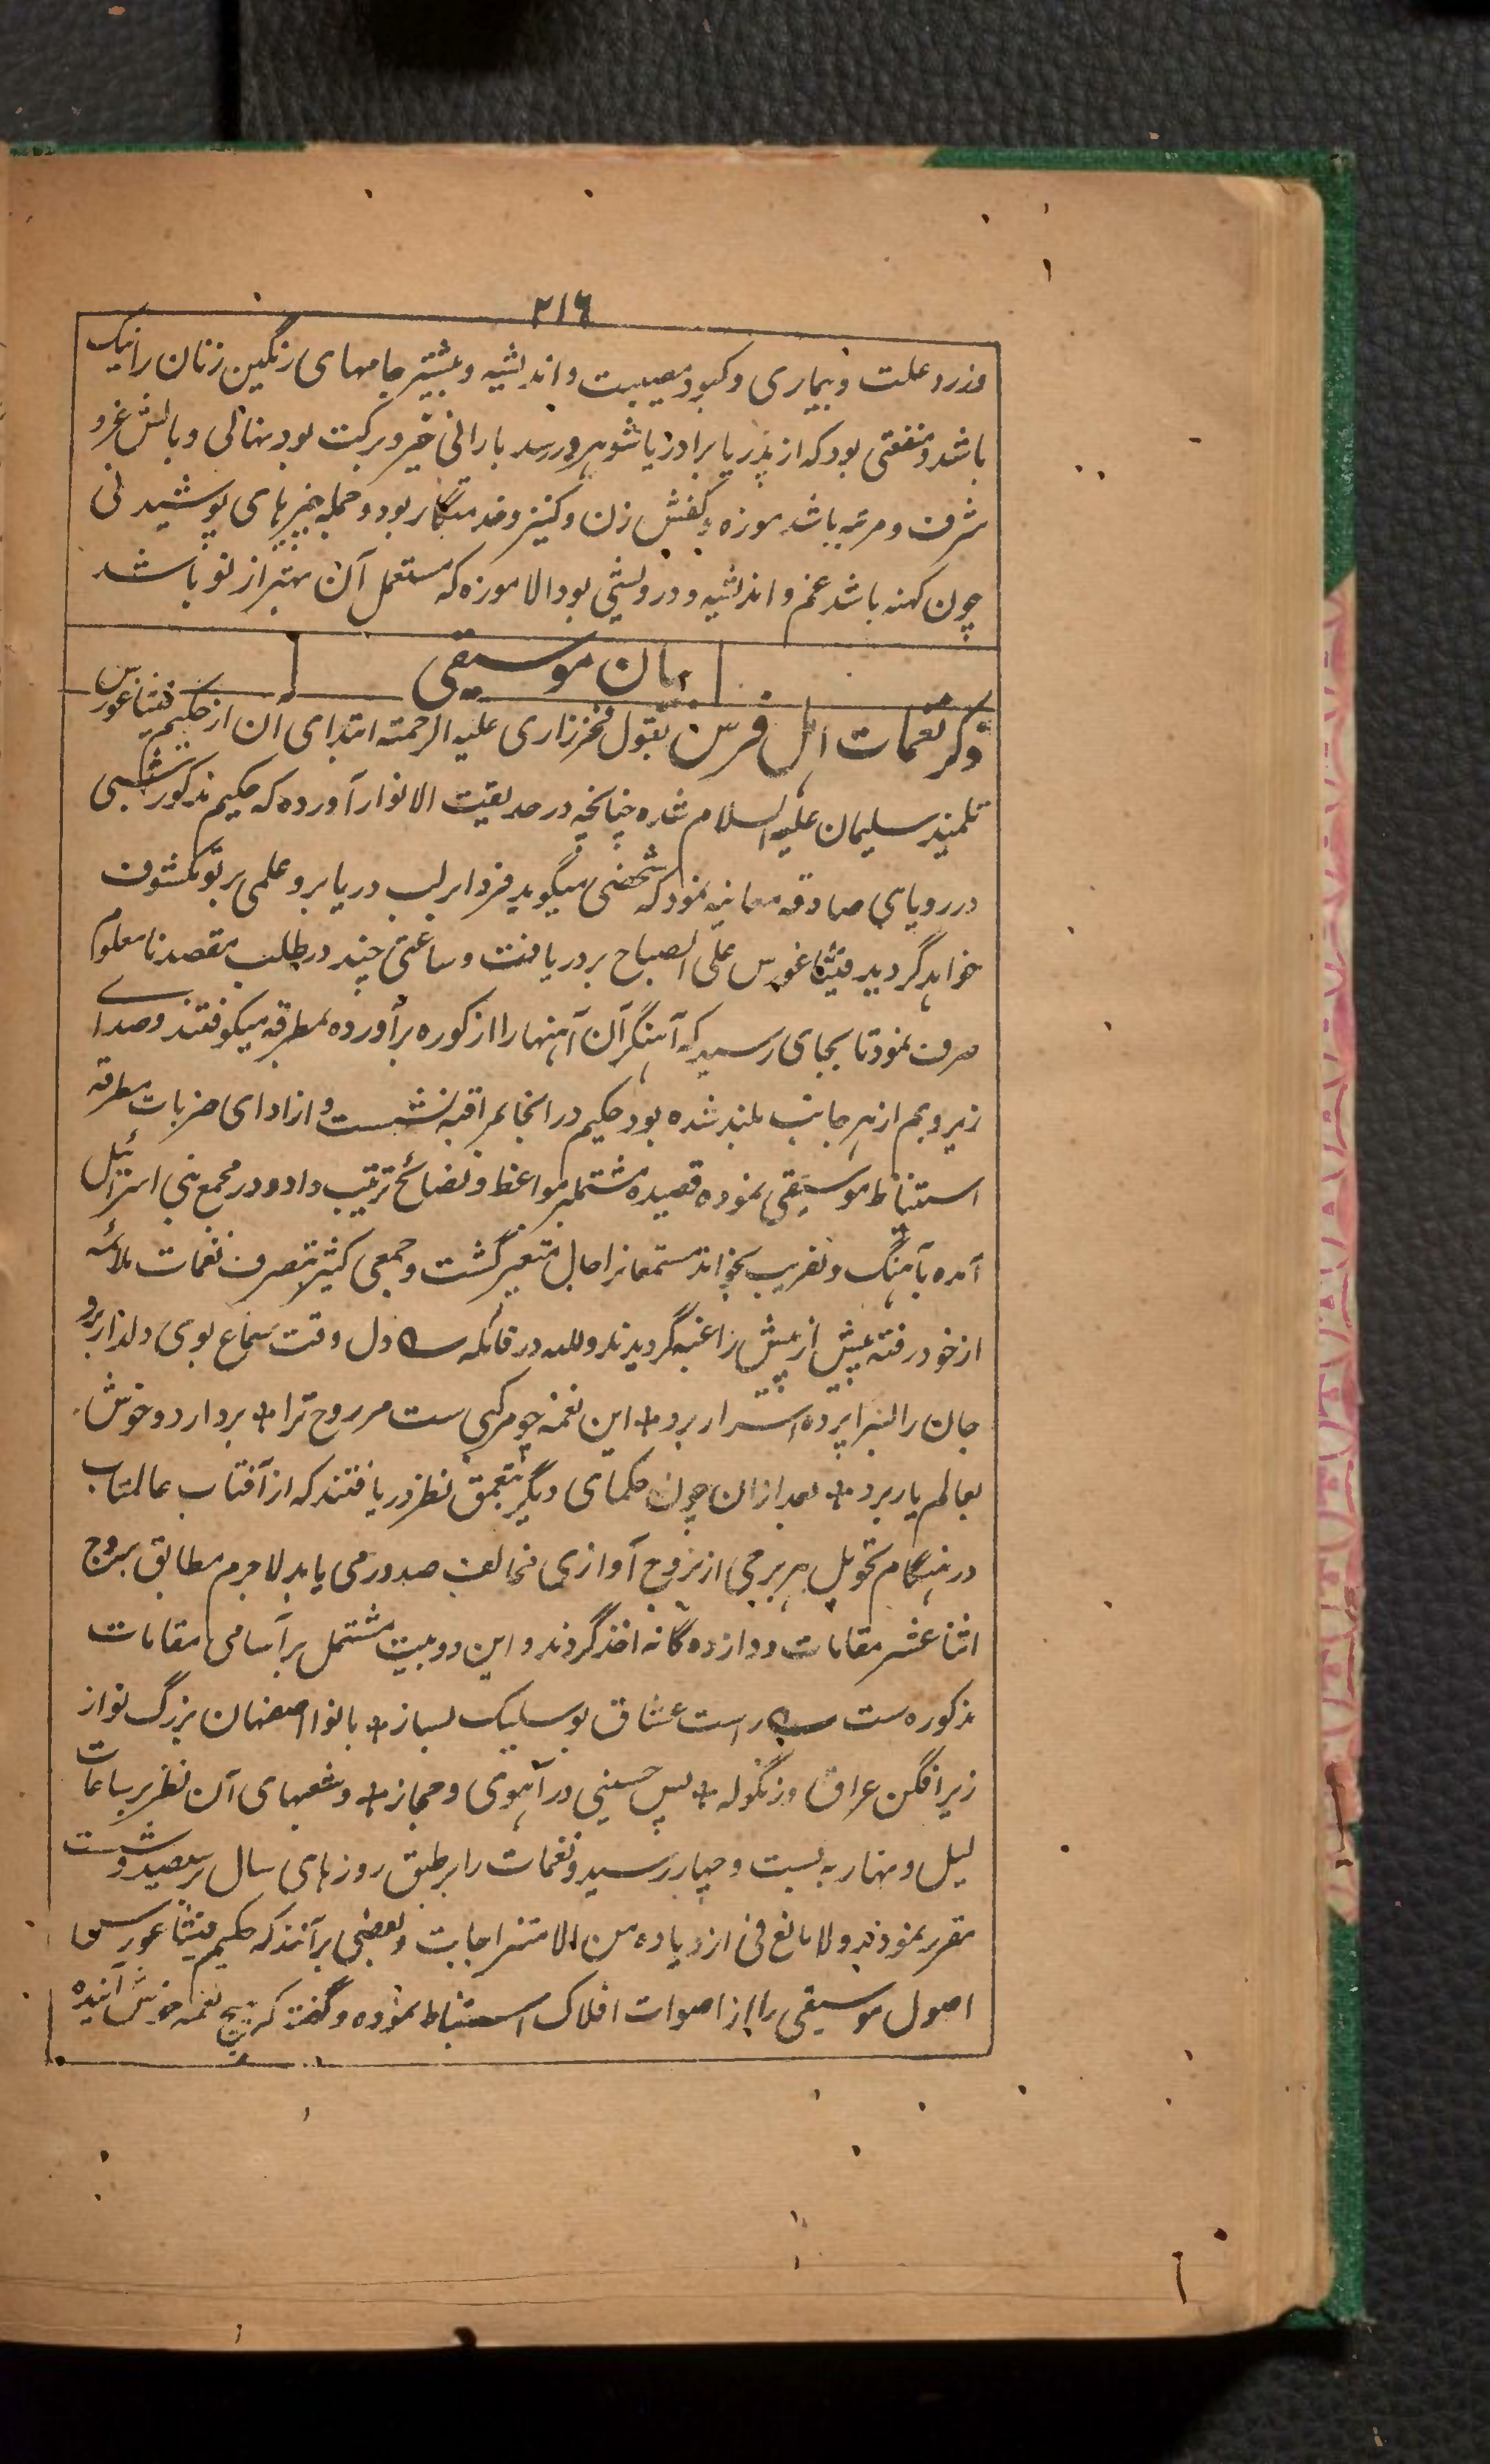 ۲۱۶
وزرد علت و بیماری و کبود مصیبت و اندیشه و بیشتر جامهای رنگین زنان را نیک
باشد و منفعتی بود که از پدر یا برادر یا شوهر رسد بارانی خیر و برکت بود نهالی و بالش غرو
شرف و مرتبه باشد موزه و کفش زن و کنیز و خدمتگار بود و جمله چیزهای پوشیدنی
چون کهنه باشد غم و اندیشه و درویشی بود الا موزه که مستعمل آن بهتر از نو باشد
بیان موسیقی
ذکر نغمات اهل فرس بقول فخر رازی علیه الرحمته ابتدای آن از حکیم فیثاغورس
تلمیذ سلیمان علیه السلام شده چنانچه در حدیقت الانوار آورده که حکیم مذکور شبی
در رویای صادقه معاینه نمود که شخصی میگوید فردا بر لب دریا برو علمی بر تو مکشوف
خواهد گردید فیثاغورس علی الصباح بر دریا رفت و ساعتی چند در طلب مقصد نامعلوم
صرف نمود تا بجای رسید که آهنگرآن آهنها را از کوره برآورده بمطرقه میکوفتند و صدای
زیر و بم از هر جانب بلند شده بود حکیم در انجا بمراقبه نشست و از ادای ضربات مطرقه
استنباط موسیقی نموده قصیده مشتملبر مواعظ و نصائح ترتیب داد و در مجمع بنی اسرائیل
آمده بآهنگ دلفریب بخواند مستمعانرا حال متغیر گشت و جمعی کثیر بتصرف نغمات ملائمه
از خود رفته بیش از پیش راغب گردیدند وللہ در قائله ؎ دل وقت سماع بوی دلدار برد
جان را بسراپرده اسرار برد * این نغمه چو مرکبی ست مر روح ترا * بردارد و خوش
بعالم یار برد * بعد ازان چون حکمای دیگر بتعمق نظر دریافتند که از آفتاب عالمتاب
در هنگام تحویل هر برجی از بروج آوازی مخالف صدور می یابد لاجرم مطابق بروج
اثنا عشر مقامات دوازده گانه اخذ گردند و این دو بیت مشتمل بر آسامی مقامات
مذکوره ست ؎ راست عشاق بوسلیک بساز * با نوا اصفهان بزرگ نواز
زیر افگن عراق و زنگوله * پس حسینی در آهوی و حجاز * و شعبهای آن نظر بر ساعات
لیل و نهار به بست و چهار رسید و نغمات را بر طبق روزهای سال سیصد و شست
مقرر نمودند ولا مانع فی ازدیاده من الامتزاجات و بعضی برآنند که حکیم فیثاغورس
اصول موسیقی را از اصوات افلاک استنباط نموده و گفته که هیچ نغمه خوش آینده